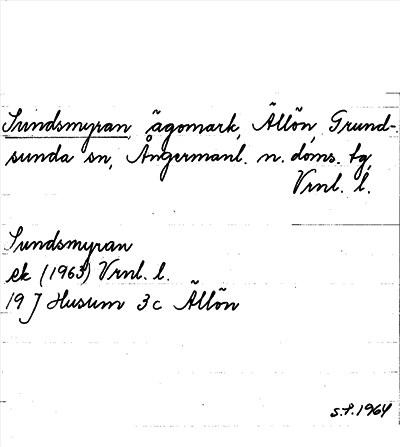 Sundsmyran, ägomark, Ällön, Grund-
sunda sn, Ångermanl. n. doms. tg,
Vrnl. l.
Sundsmyran
ek (1963) Vrnl. l.
19 J Husum 3c Ällön
S.f. 1964